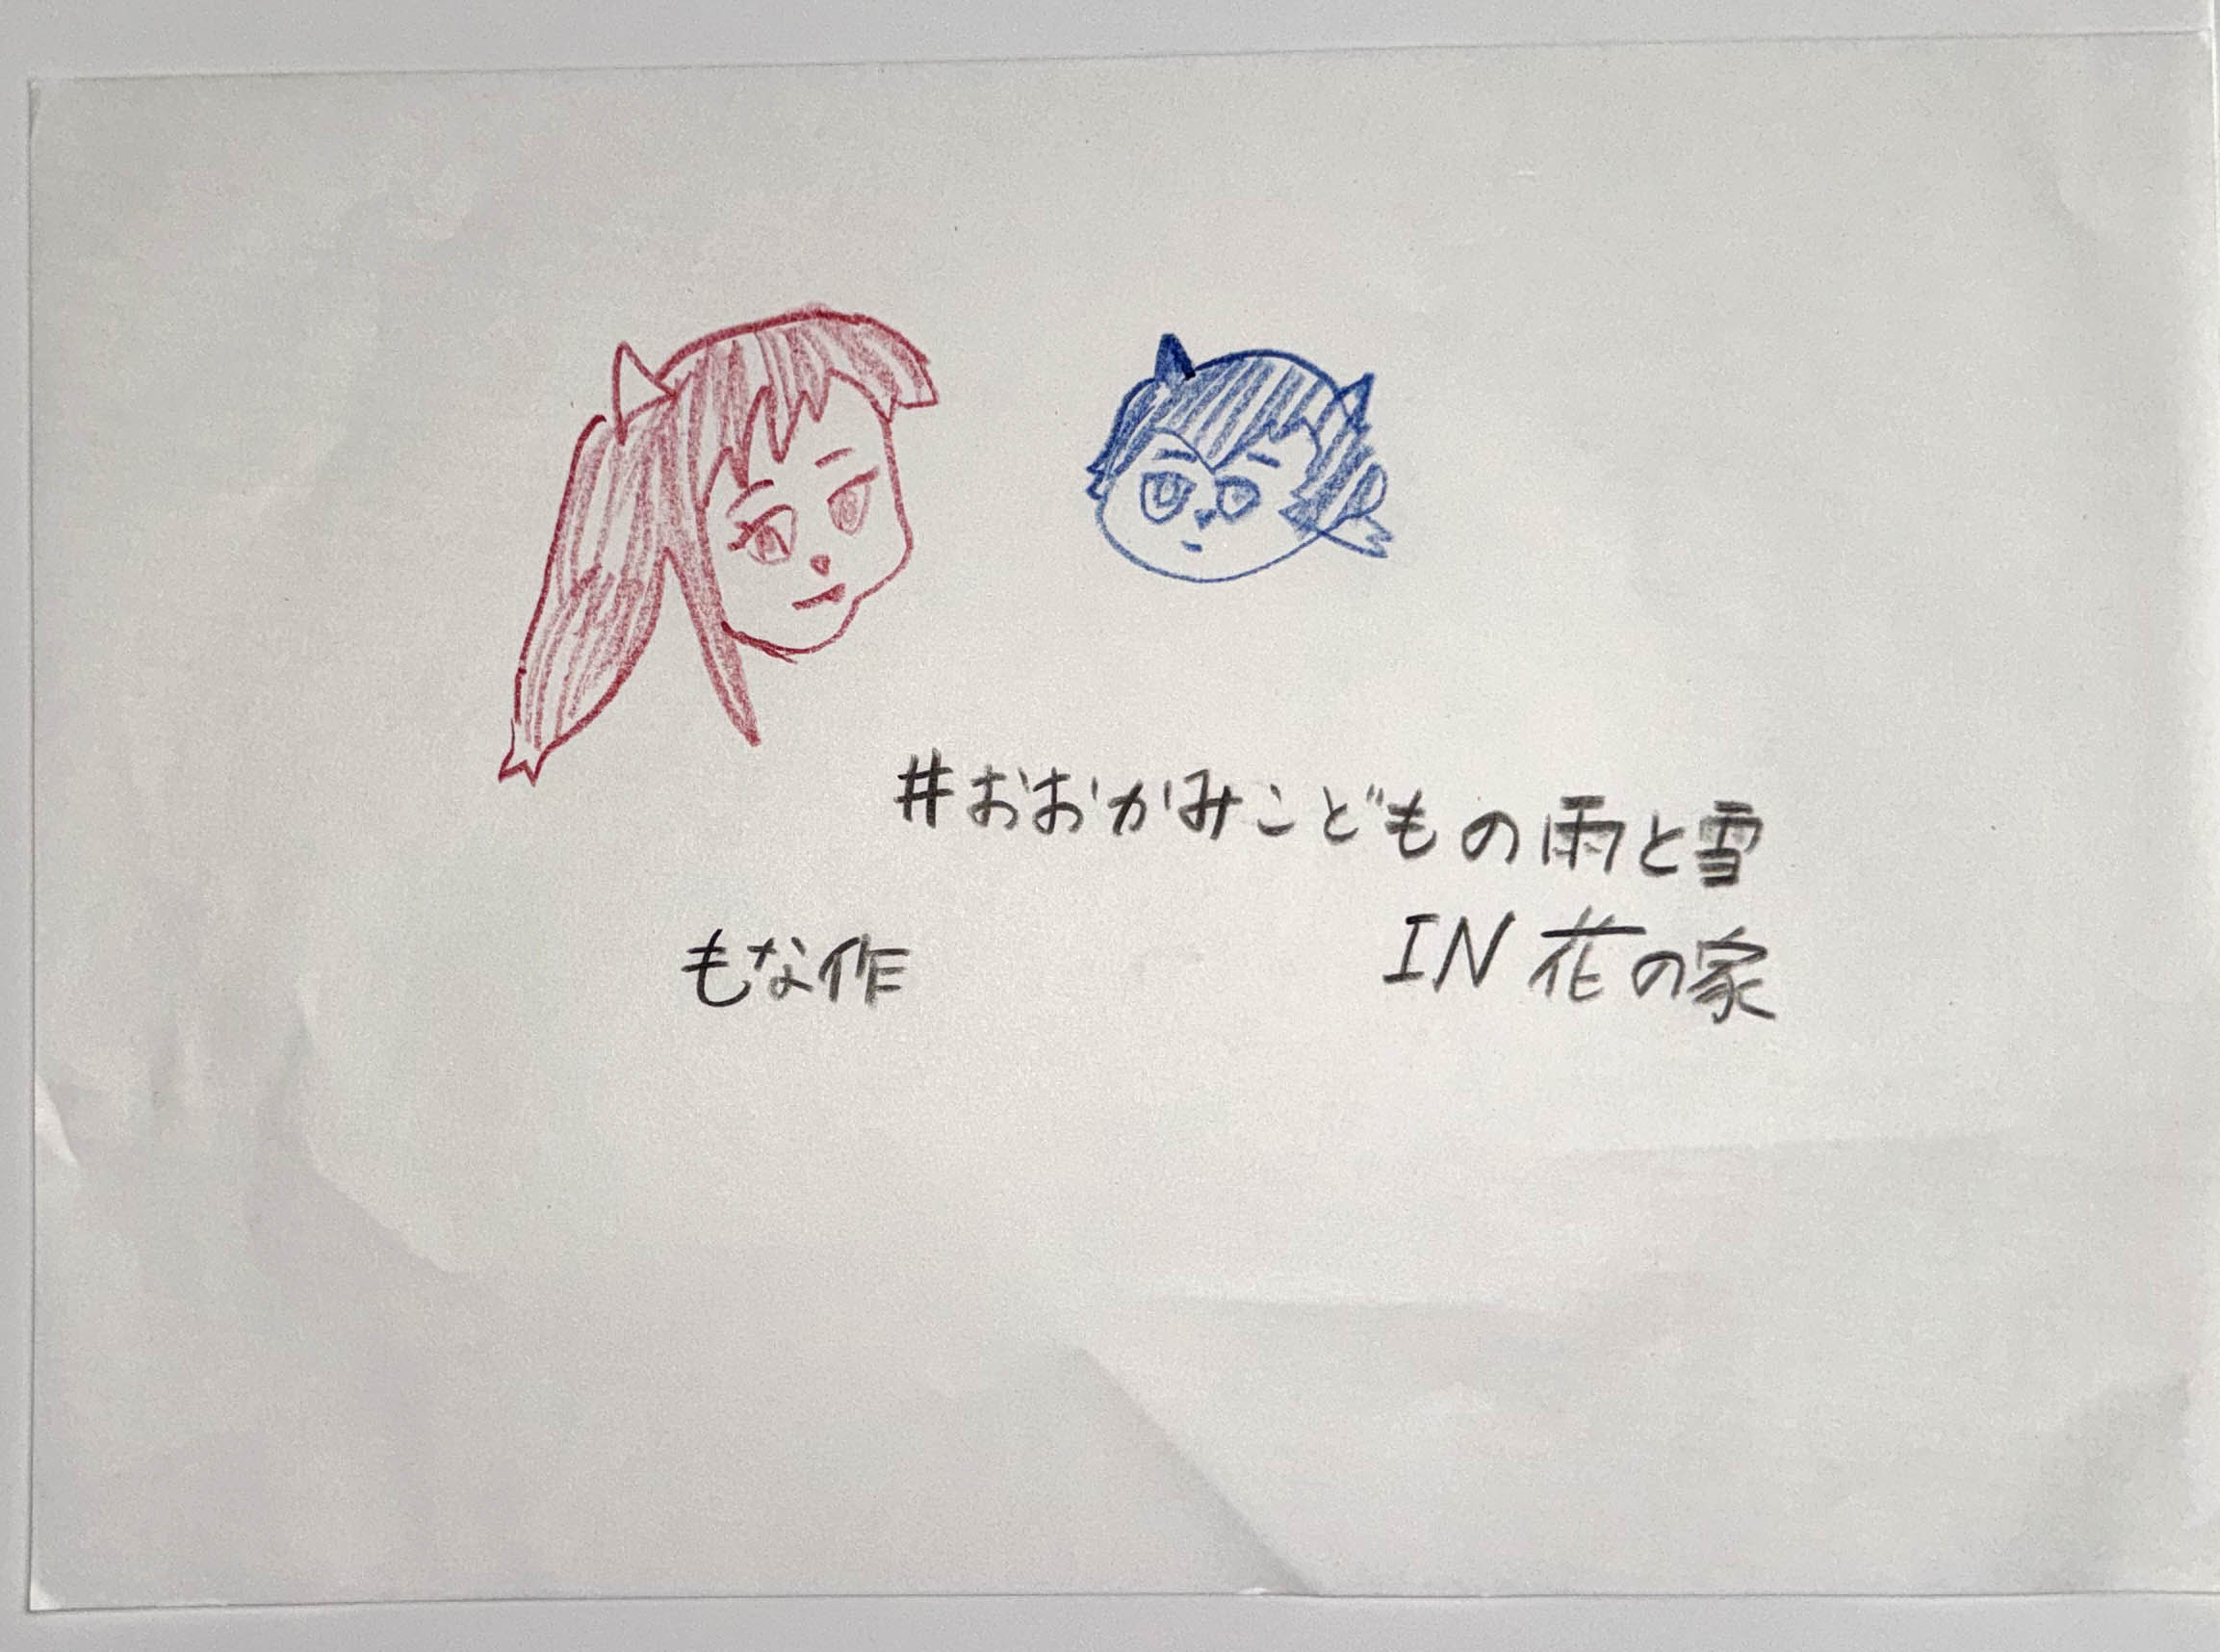 #おおかみこどもの雨と雪
IN 花の家
もな作